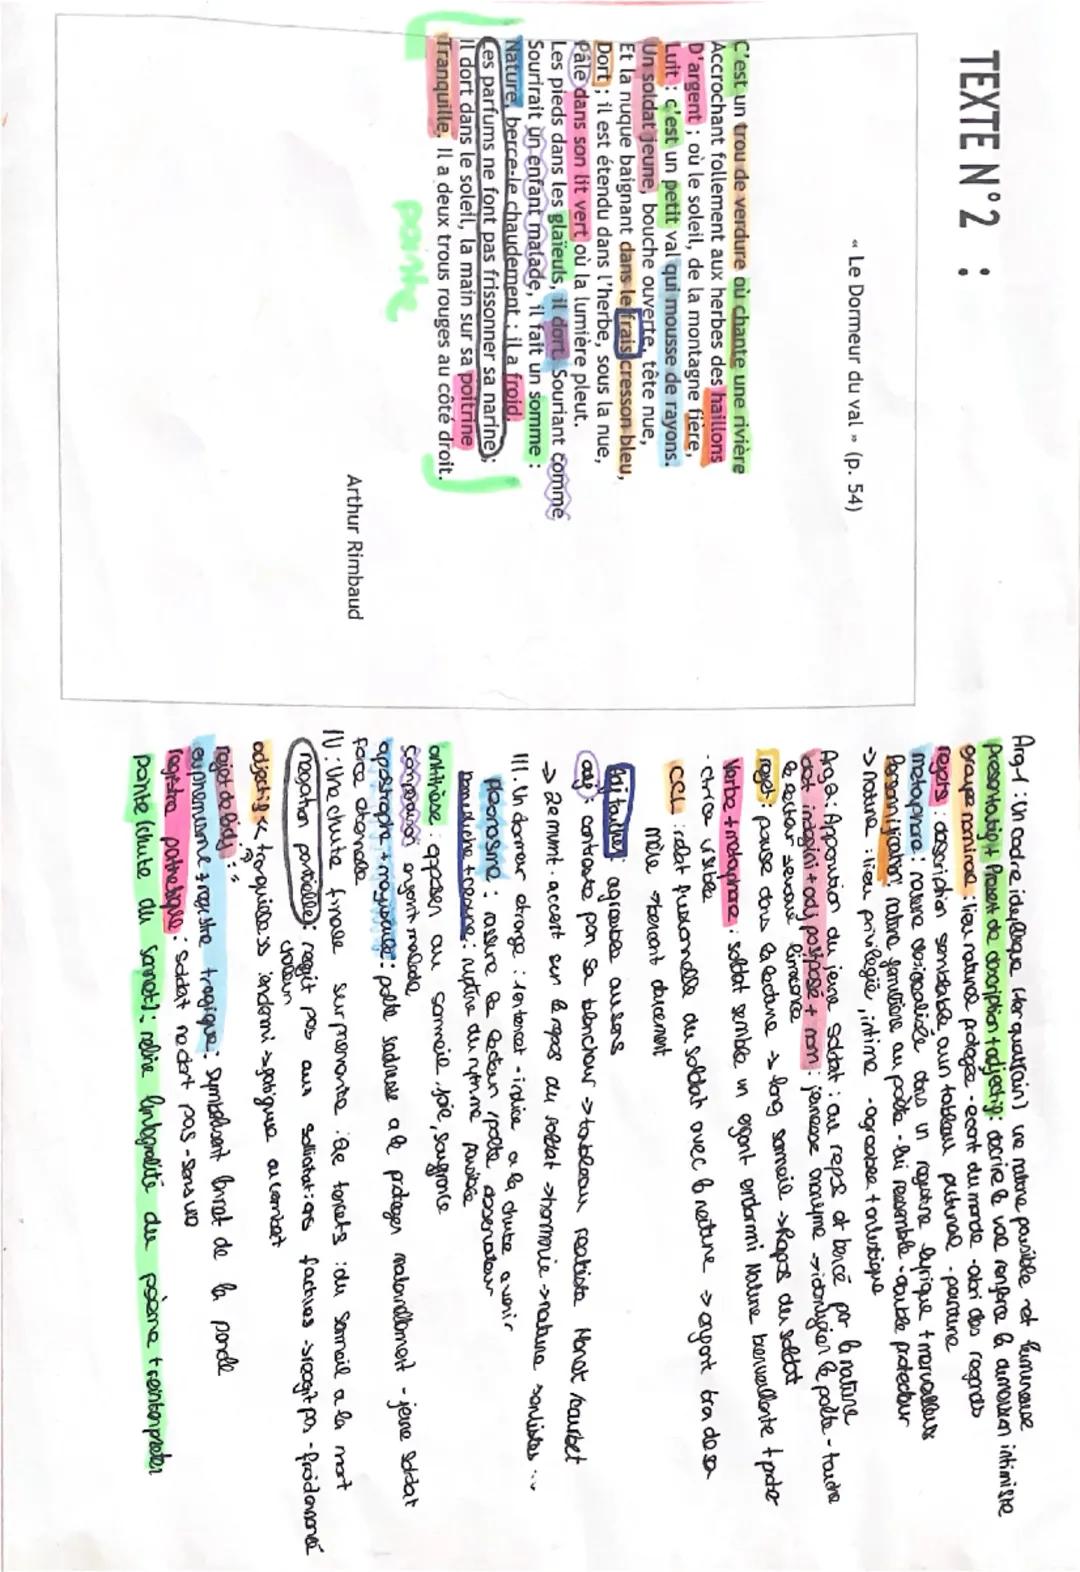 TEXTE N°2 :
« Le Dormeur du val » (p. 54)
C'est un trou de verdure où chante une rivière
Accrochant follement aux herbes des haillons
D'argent ; où le soleil, de la montagne fière,
Luit : c'est un petit val qui mousse de rayons.
Un soldat jeune, bouche ouverte, tête nue,
Et la nuque baignant dans le frais cresson bleu,
Dort ; il est étendu dans l'herbe, sous la nue,
Pâle dans son lit vert où la lumière pleut.
Les pieds dans les glaïeuls, il dort. Souriant comme
Sourirait un enfant malade, il fait un somme :
Nature, berce-le chaudement : il a froid.
Les parfums ne font pas frissonner sa narine ;
Il dort dans le soleil, la main sur sa poitrine
Tranquille. Il a deux trous rouges au côté droit.
pointe
Arthur Rimbaud
Arg 1 : Un cadre idyllique (1er quatrain) une nature paisible et lumineuse
présentatif + Présent de description + adjectif : décrire le val renforce la dimension intimiste
groupe nominal : lieu naturel protégé - écart du monde - abri des regards
rejets : description semblable à un tableau pictural - peinture
métaphore : nature déjà idéalisée dans un registre lyrique + merveilleux
Personnification : nature familière au poète - lui ressemble - double protecteur
-> nature : lieu privilégié, intime - agréable + artistique
Arg 2 : Apparition du jeune soldat : au repos et bercé par la nature
art indéfini + adj postposé + nom : jeunesse anonyme -> identifier le poète - touche
le lecteur
rejet : pause dans la lecture -> long sommeil -> Repos du soldat
Verbe + métaphore : soldat semble un enfant endormi Nature bienveillante + protec
trice visible
CCL : relat fusionnelle du soldat avec la nature -> enfant bras de sa
mère -> berçant doucement
adj toucher : agréable au sens
adj : contraste par sa blancheur -> tableau réaliste Manet Courbet
-> 2e mvmt : accent sur le repos du soldat -> harmonie -> nature
III. Un dormeur étrange : 1er tercet - indice à la chute à venir
pléonasme : rassure le lecteur poète observateur
: rupture du rythme paisible
antithèse : opposer au sommeil joie, souffrance
comparaison enfant malade
apostrophe + majuscule : poète s'adresse à le protéger maternellement - jeune soldat
IV : Une chute finale surprenante : 2e tercets : du sommeil à la mort
négation partielle : réagit pas aux sollicitations factives -> réagit pas
adjectif « tranquille » : endormi -> fatigue au combat
rejet de l'adj
euphémisme + registre tragique : symbolisent
registre pathétique : soldat ne dort pas - sans vie
pointe (chute du sonnet) : relire l'intégralité du poème